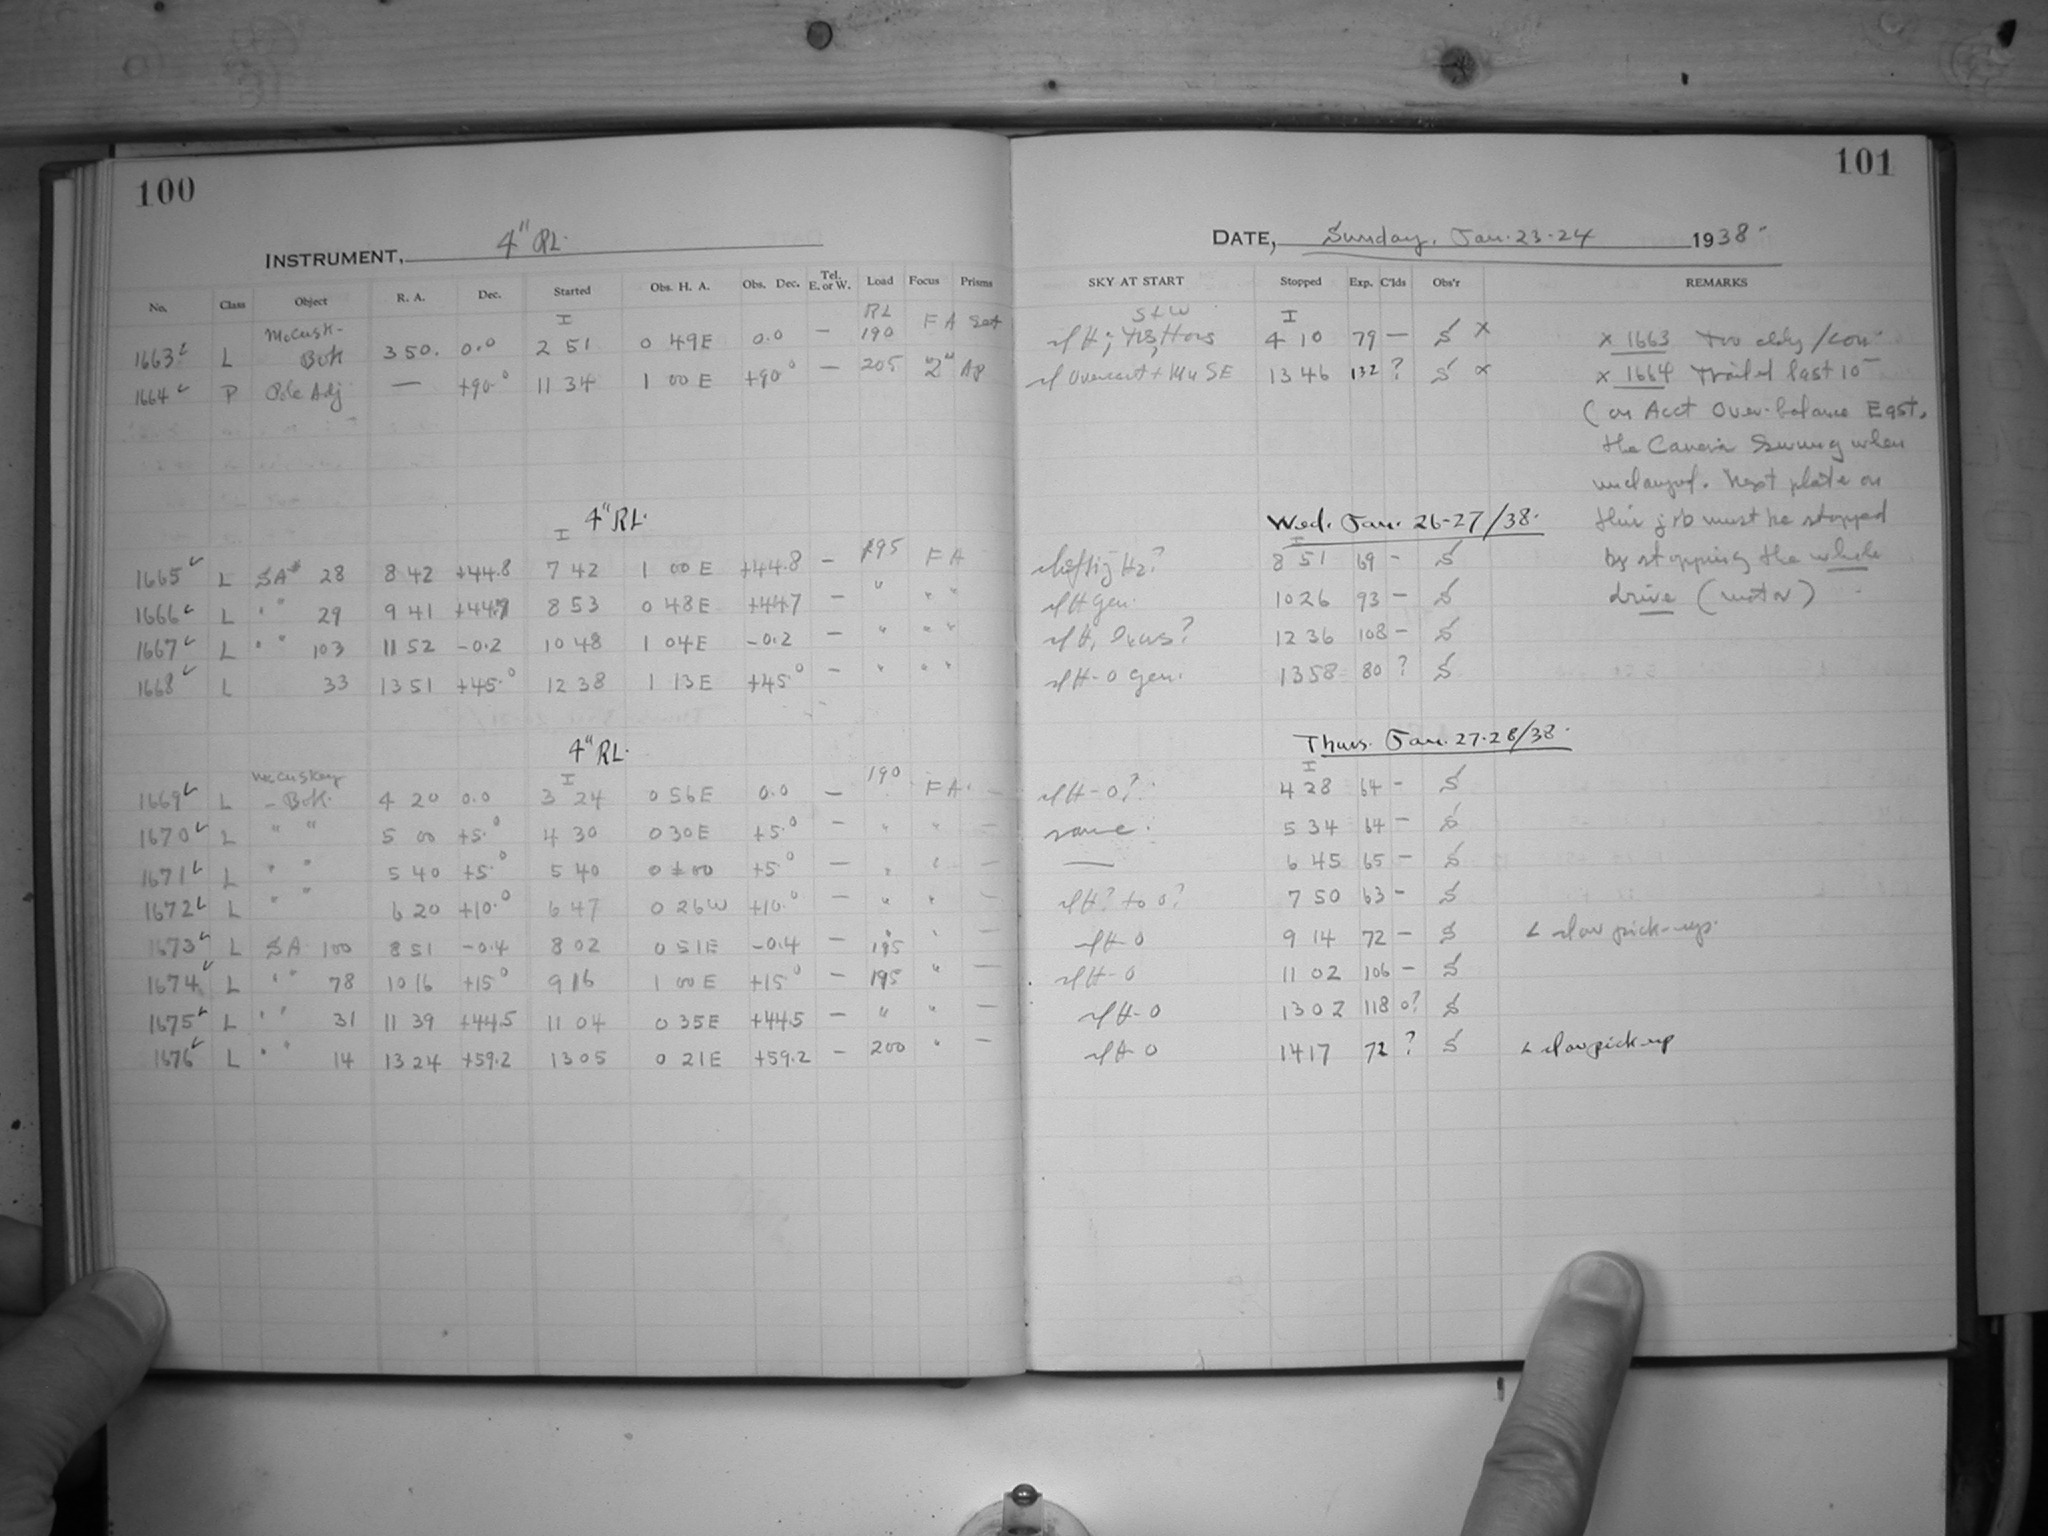 100
INSTRUMENT, 4" RL.
No. Class Object R. A. Dec. Started Obs. H. A. Obs. Dec. Tel. E. or W. Load Focus Prisms
I RL
McCusk-
1663 L Bok 3 50. 0.0 2 51 0 49E 0.0 — 190 F A
1664 P Pole Adj — +90° 11 34 1 00 E +90° — 205 "2" Ap
4" RL.
I
1665 L SA 28 8 42 +44.8 7 42 1 00 E +44.8 — 195 F A
1666 L " " 29 9 41 +44.7 8 53 0 48E +44.7 — " " "
1667 L " " 103 11 52 -0.2 10 48 1 04E -0.2 — " " "
1668 L 33 13 51 +45.° 12 38 1 13E +45.° — " " "
4" RL.
McCuskey I 190
1669 L - Bok. 4 20 0.0 3 24 0 56E 0.0 — F A. —
1670 L " " 5 00 +5.° 4 30 0 30E +5.° — " " —
1671 L " " 5 40 +5.° 5 40 0 ±00 +5.° — " " —
1672 L " " 6 20 +10.° 6 47 0 26W +10.° — " " —
1673 L SA 100 8 51 -0.4 8 02 0 51E -0.4 — 195 " —
1674 L " " 78 10 16 +15° 9 16 1 00 E +15° — 195 " —
1675 L " " 31 11 39 +44.5 11 04 0 35E +44.5 — " " —
1676 L " " 14 13 24 +59.2 13 05 0 21E +59.2 — 200 " —
101
DATE, Sunday, Jan. 23-24 1938.
SKY AT START Stopped Exp. C'lds Obs'r REMARKS
S+W I
4 10 79 — S x x 1663 Too cldy/con
Overcast + SE 13 46 132 ? S x x 1664 Trailed last 10
(on Acct Over-balance East.
the Camera Swung when
unclamped. Next plate on
Wed. Jan. 26-27/38. this job must be stopped
I
8 51 69 - S by stopping the whole
H gen. 10 26 93 — S drive (motor)
12 36 108 — S
H-0 gen. 13 58 80 ? S
Thurs. Jan. 27-28/38.
I
H-0? 4 28 64 - S
same. 5 34 64 — S
— 6 45 65 — S
H? to 0? 7 50 63 - S
H-0 9 14 72 — S slow pick-up.
H-0 11 02 106 — S
H-0 13 02 118 0? S
H-0 14 17 72 ? S slow pick-up